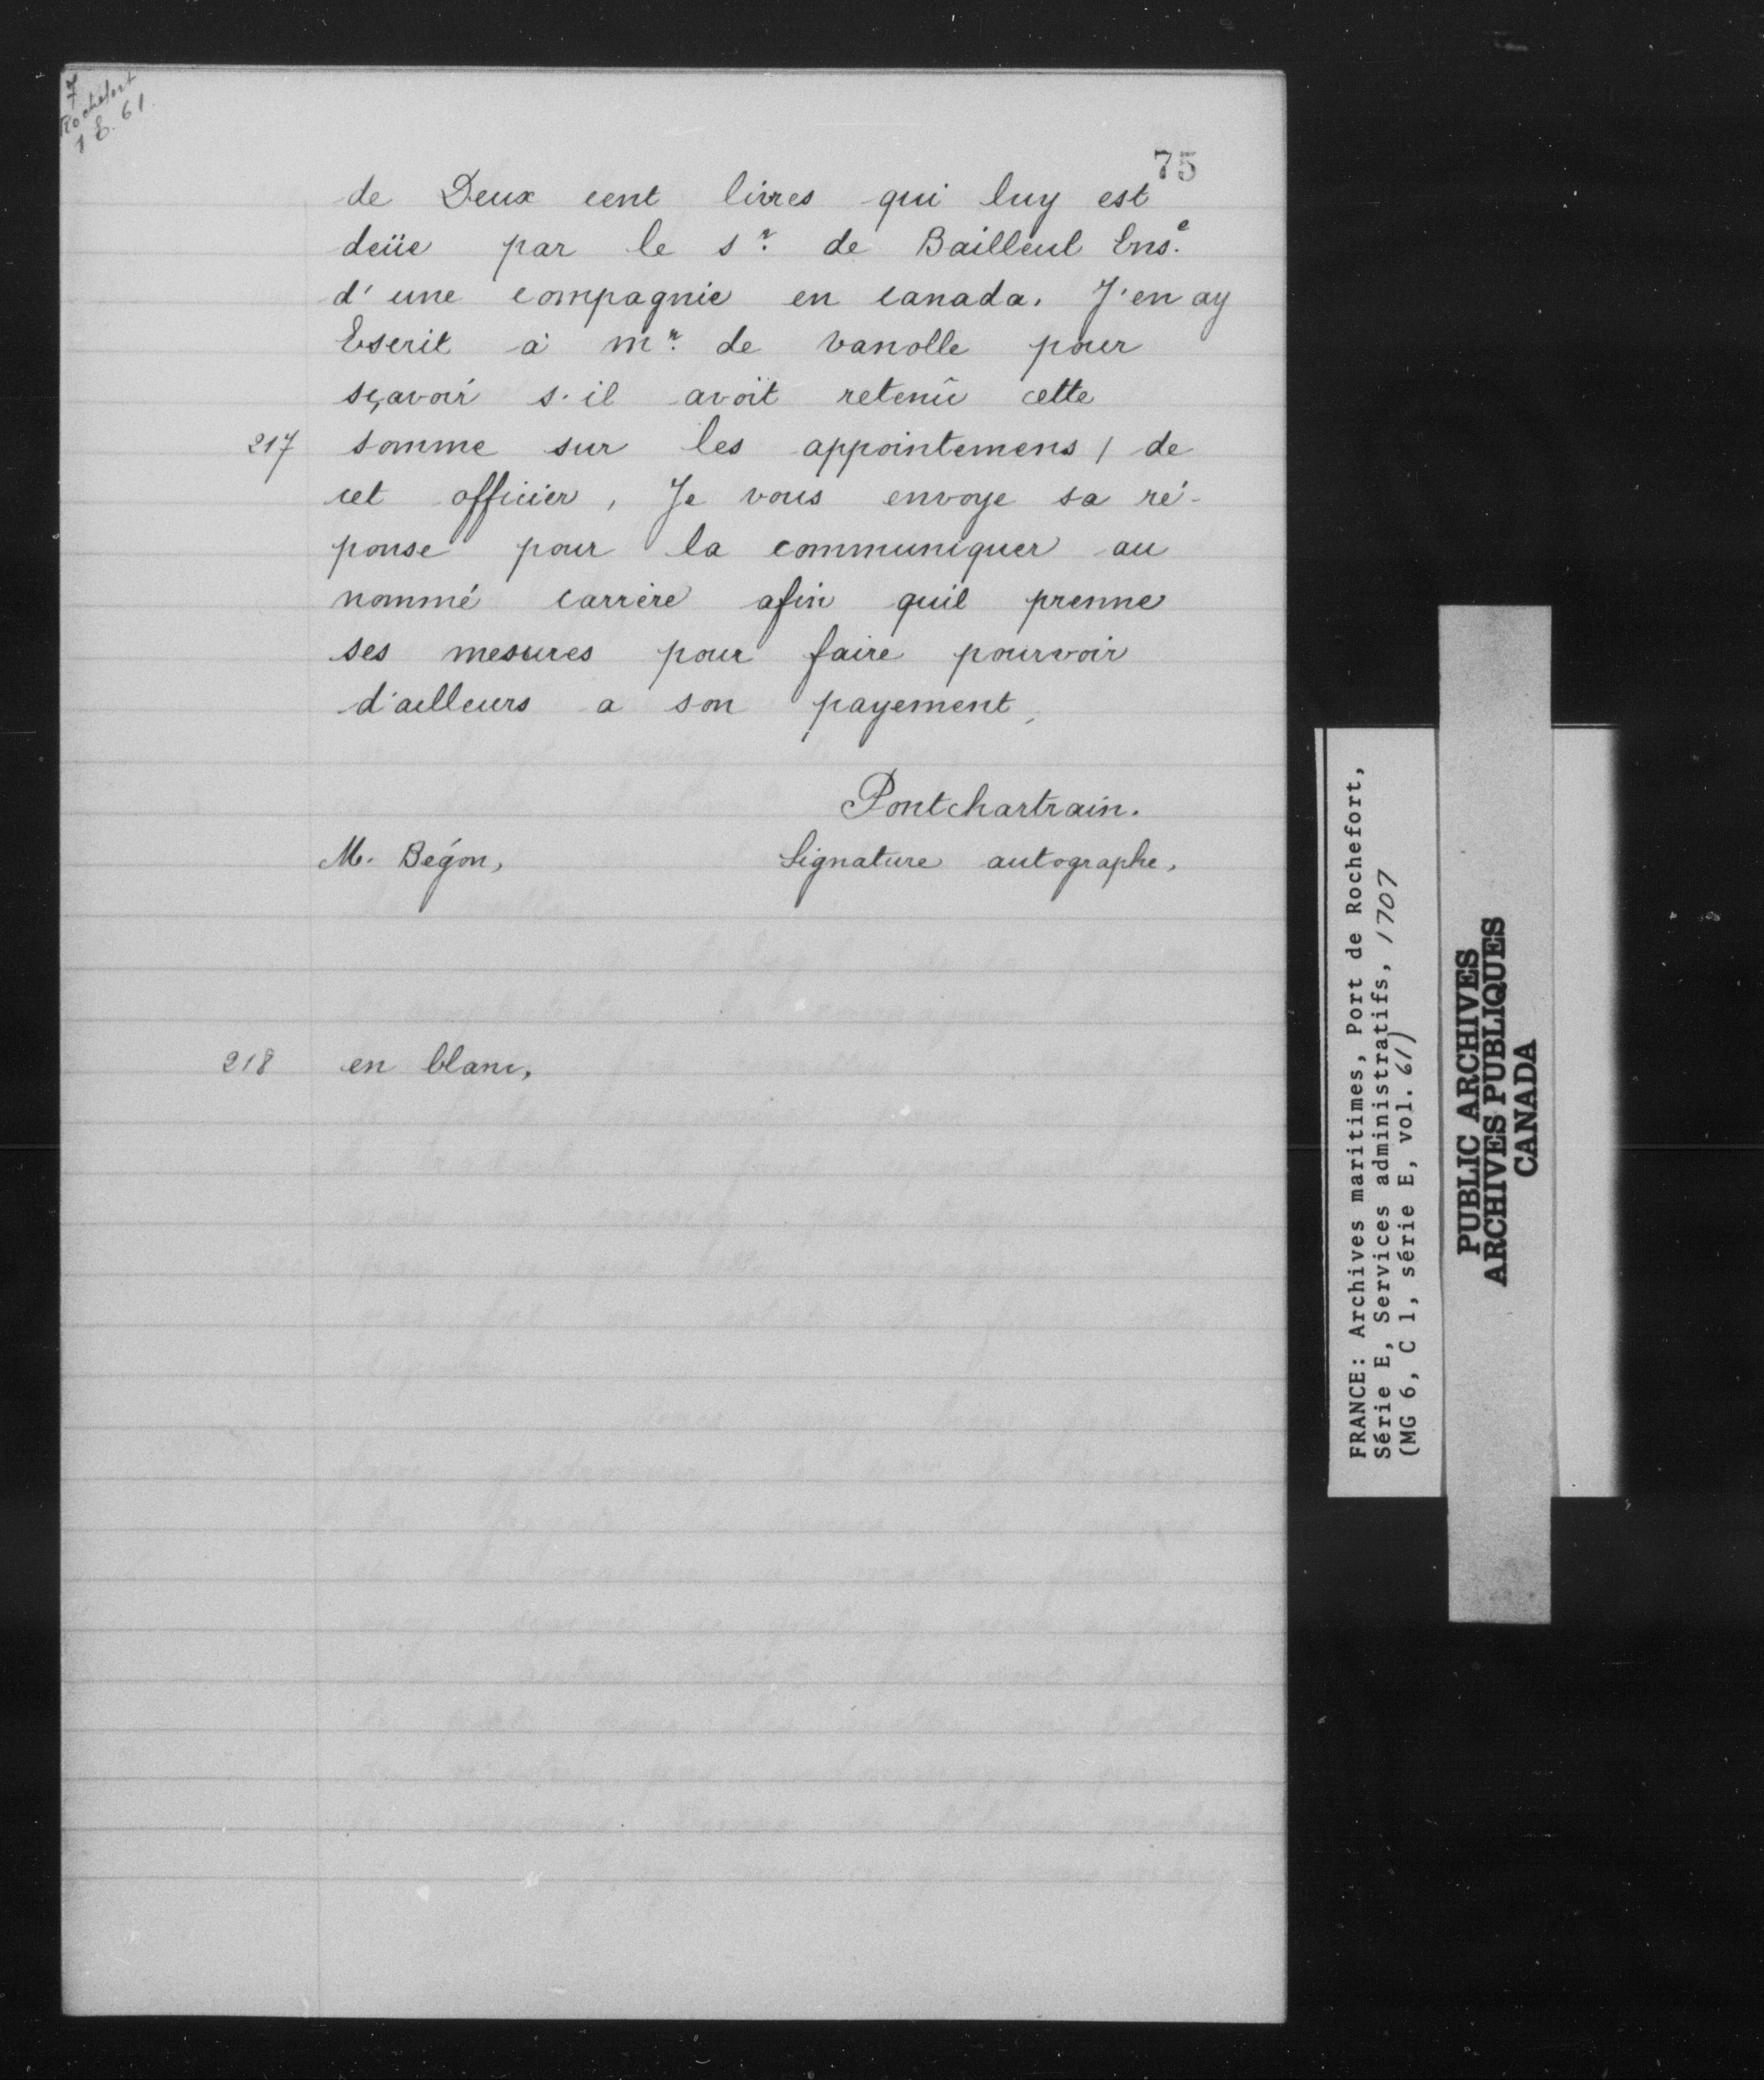 7
Rochefort
1 E. 61.
75
de Deux cent livres qui luy est
deüe par le sr. de Bailleul Ense.
d'une compagnie en canada. J'en ay
Escrit à mr. de vanolle pour
sçavoir s'il avoit retenû cette
217 somme sur les appointemens / de
cet officier, Je vous envoye sa ré-
ponse pour la communiquer au
nommé carrère afin quil prenne
ses mesures pour faire pourvoir
d'ailleurs a son payement,
Pontchartrain.
M. Bégon, Signature autographe,
218 en blanc,
FRANCE: Archives maritimes, Port de Rochefort,
Série E, Services administratifs, 1707
(MG 6, C 1, série E, vol. 61)
PUBLIC ARCHIVES
ARCHIVES PUBLIQUES
CANADA